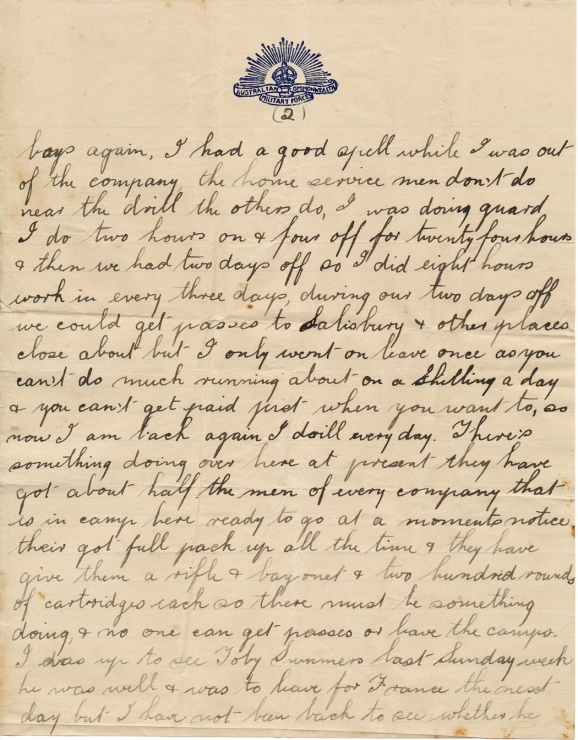 AUSTRALIAN COMMONWEALTH
MILITARY FORCES
(2)
boys again, I had a good spell while I was out
of the company, the home service men don't do
near the drill the others do, I was doing guard
I do two hours on & four off for twenty four hours
& then we had two days off so I did eight hours
work in every three days, during our two days off
we could get passes to Salisbury & other places
close about but I only went on leave once as you
can't do much running about on a Shilling a day
& you can't get paid just when you want to, so
now I am back again I drill every day. There's
something doing over here at present they have
got about half the men of every company that
is in camp here ready to go at a moments notice
their got full pack up all the time & they have
give them a rifle & bayonet & two hundred rounds
of cartridges each so there must be something
doing, & no one can get passes or leave the camp.
I was up to see Toby Summers last Sunday week
he was well & was to leave for France the next
day but I have not been back to see whether he